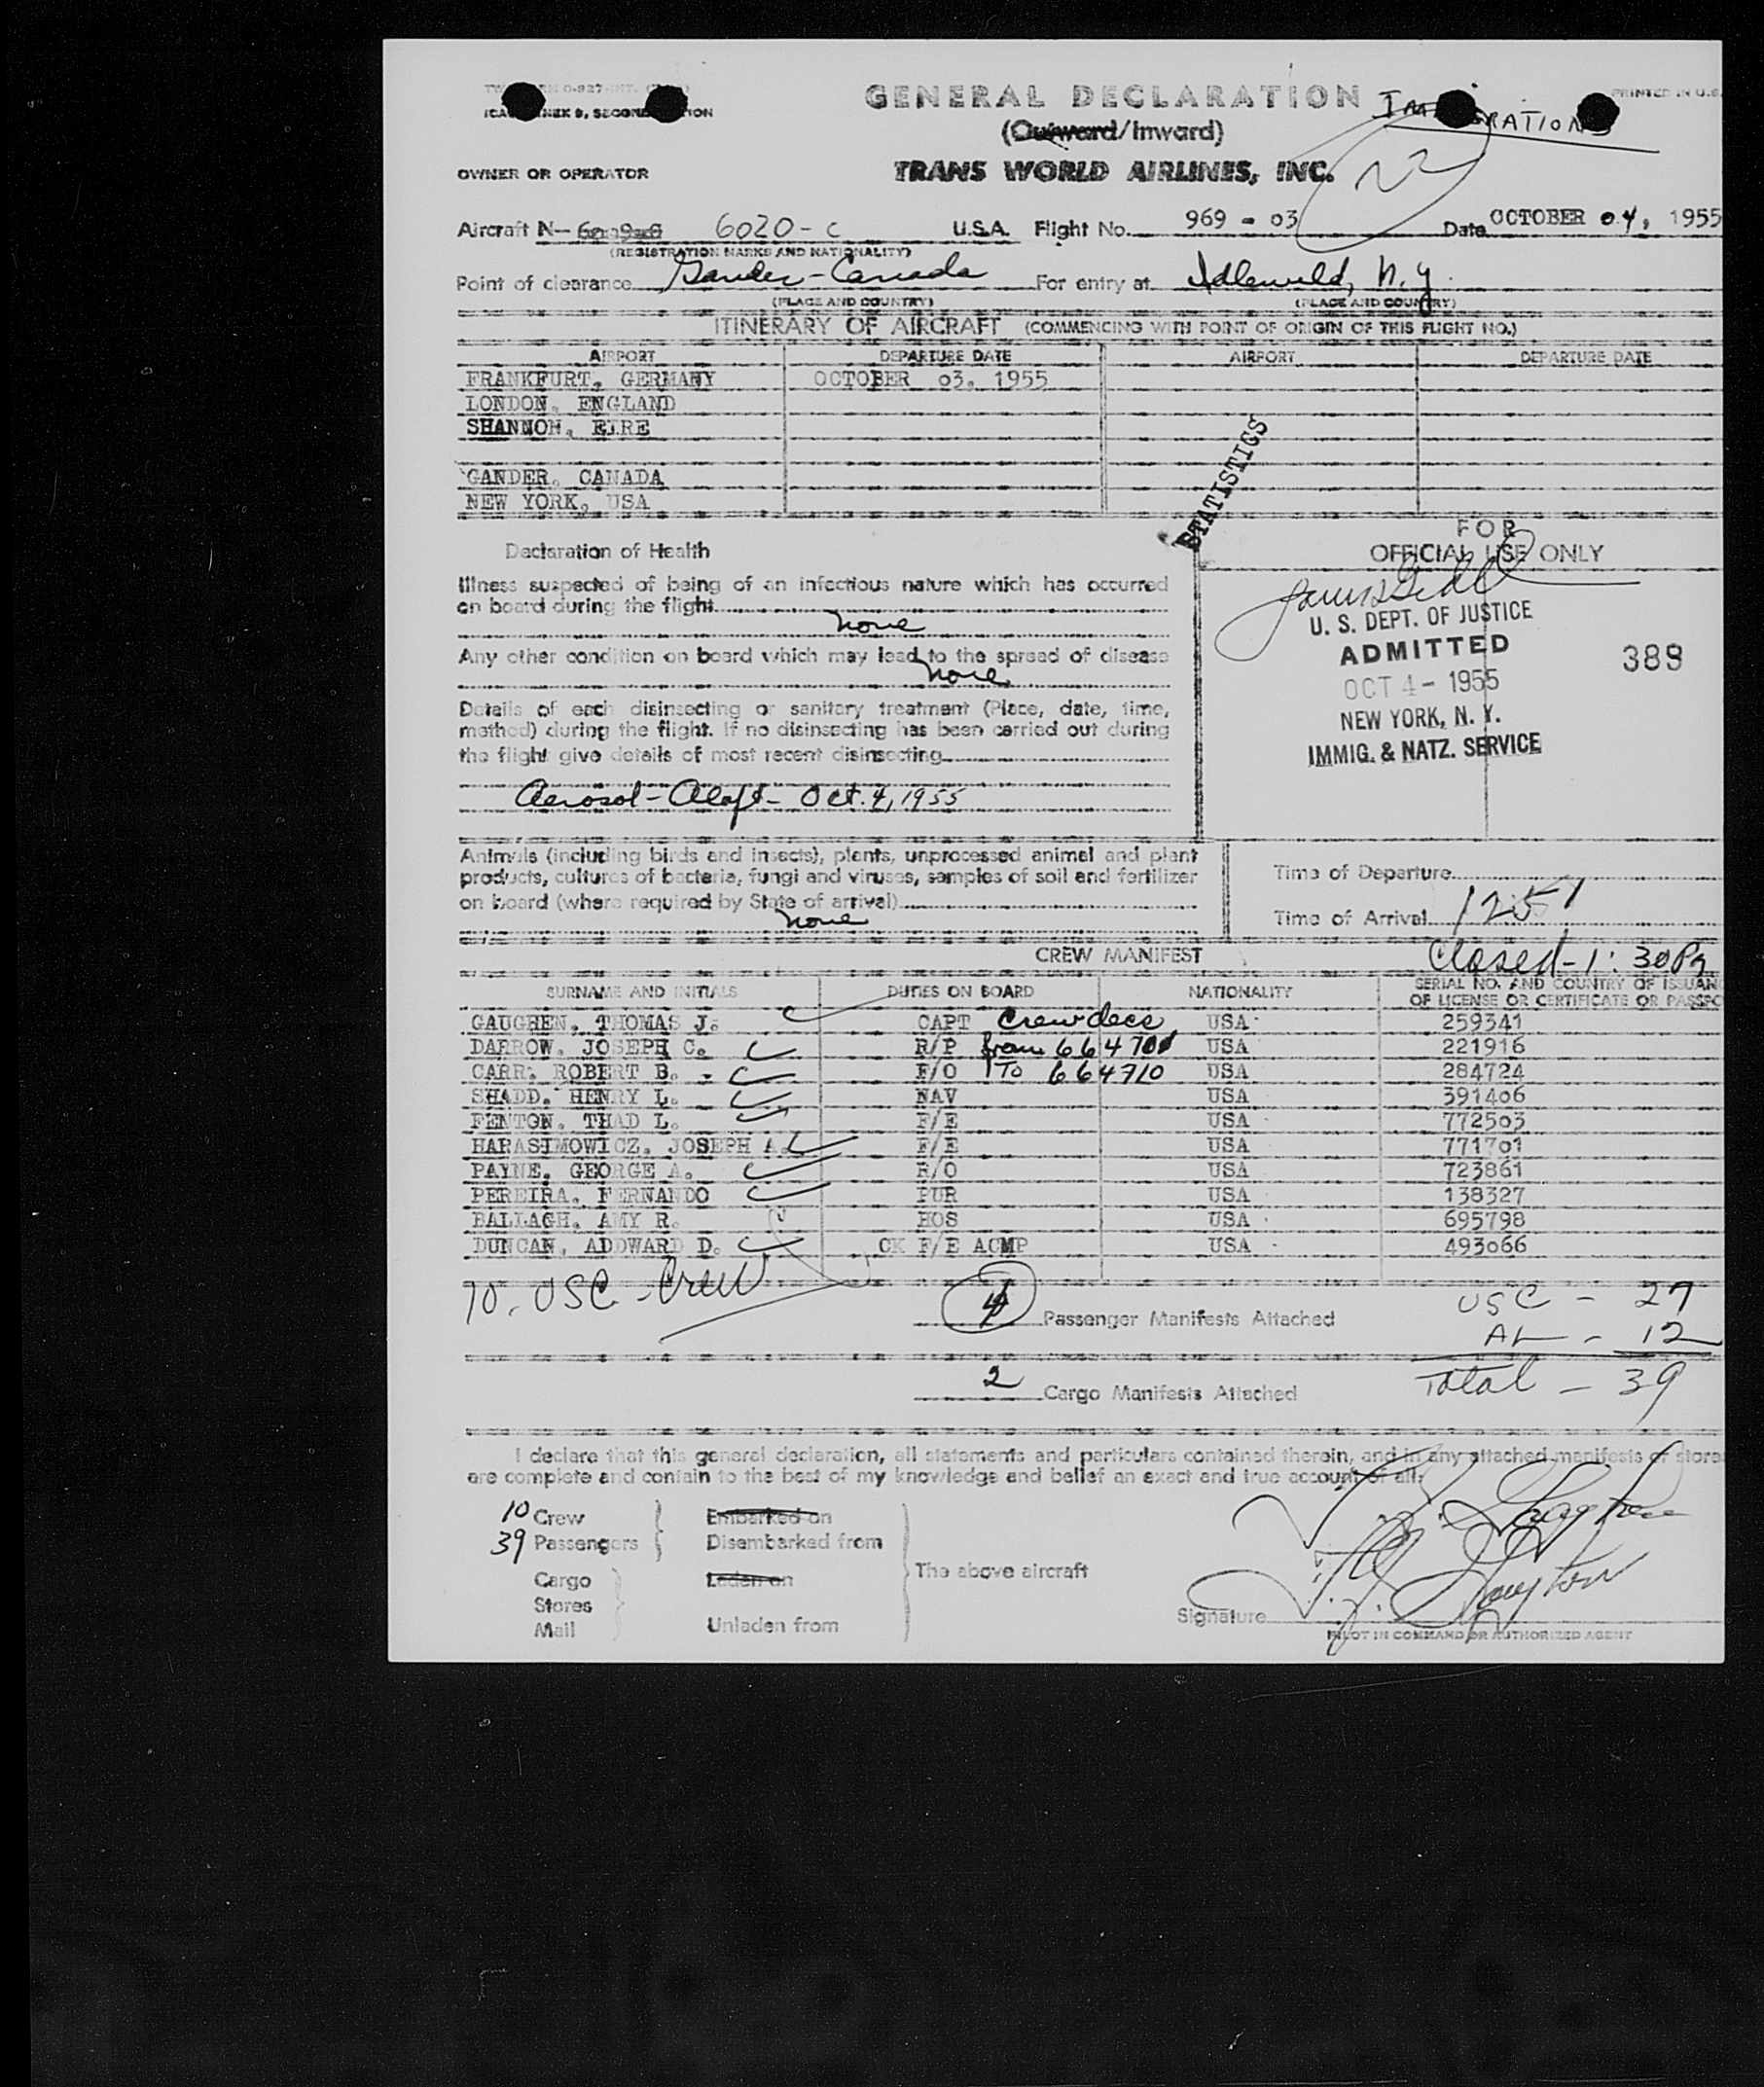 GENERAL DECLARATION
IMMIGRATION
PRINTED IN U.S.
(Outward/Inward)
OWNER OR OPERATOR
TRANS WORLD AIRLINES, INC.
Aircraft N- 6020-C U.S.A. Flight No. 969 - 03 Date OCTOBER 04, 1955
(REGISTRATION MARKS AND NATIONALITY)
Point of clearance Gander-Canada For entry at Idlewild, N.Y.
(PLACE AND COUNTRY) (PLACE AND COUNTRY)
ITINERARY OF AIRCRAFT (COMMENCING WITH POINT OF ORIGIN OF THIS FLIGHT NO.)
AIRPORT DEPARTURE DATE AIRPORT DEPARTURE DATE
FRANKFURT, GERMANY OCTOBER 03, 1955
LONDON, ENGLAND
SHANNON, EIRE
GANDER, CANADA
NEW YORK, USA
STATISTICS
Declaration of Health
Illness suspected of being of an infectious nature which has occurred
on board during the flight
none
Any other condition on board which may lead to the spread of disease
none
Details of each disinsecting or sanitary treatment (Place, date, time,
method) during the flight. If no disinsecting has been carried out during
the flight give details of most recent disinsecting
Aerosol-Aloft- Oct. 4, 1955
FOR
OFFICIAL USE ONLY
U. S. DEPT. OF JUSTICE
ADMITTED
OCT 4 - 1955
NEW YORK, N. Y.
IMMIG. & NATZ. SERVICE
389
Animals (including birds and insects), plants, unprocessed animal and plant
products, cultures of bacteria, fungi and viruses, samples of soil and fertilizer
on board (where required by State of arrival)
none
Time of Departure
Time of Arrival 1251
Closed-1:30 Pm
CREW MANIFEST
SURNAME AND INITIALS DUTIES ON BOARD NATIONALITY SERIAL NO. AND COUNTRY OF ISSUAN
OF LICENSE OR CERTIFICATE OR PASSPO
GAUGHEN, THOMAS J. CAPT Crew decs USA 259341
DARROW, JOSEPH C. R/P from 664701 USA 221916
CARR, ROBERT B. F/O To 664710 USA 284724
SHADD, HENRY L. NAV USA 391406
FENTON, THAD L. F/E USA 772503
HARASIMOWICZ, JOSEPH A. F/E USA 771701
PAYNE, GEORGE A. R/O USA 723861
PEREIRA, FERNANDO PUR USA 138327
BALLAGH, AMY R. HOS USA 695798
DUNCAN, ADDWARD D. CK F/E ACMP USA 493066
10. USC - Crew
4 Passenger Manifests Attached
USC - 27
AL - 12
2 Cargo Manifests Attached
Total - 39
I declare that this general declaration, all statements and particulars contained therein, and in any attached manifests or store
are complete and contain to the best of my knowledge and belief an exact and true account of all:
10 Crew Embarked on
39 Passengers Disembarked from
The above aircraft
Cargo Laden on
Stores
Mail Unladen from
Signature
PILOT IN COMMAND OR AUTHORIZED AGENT